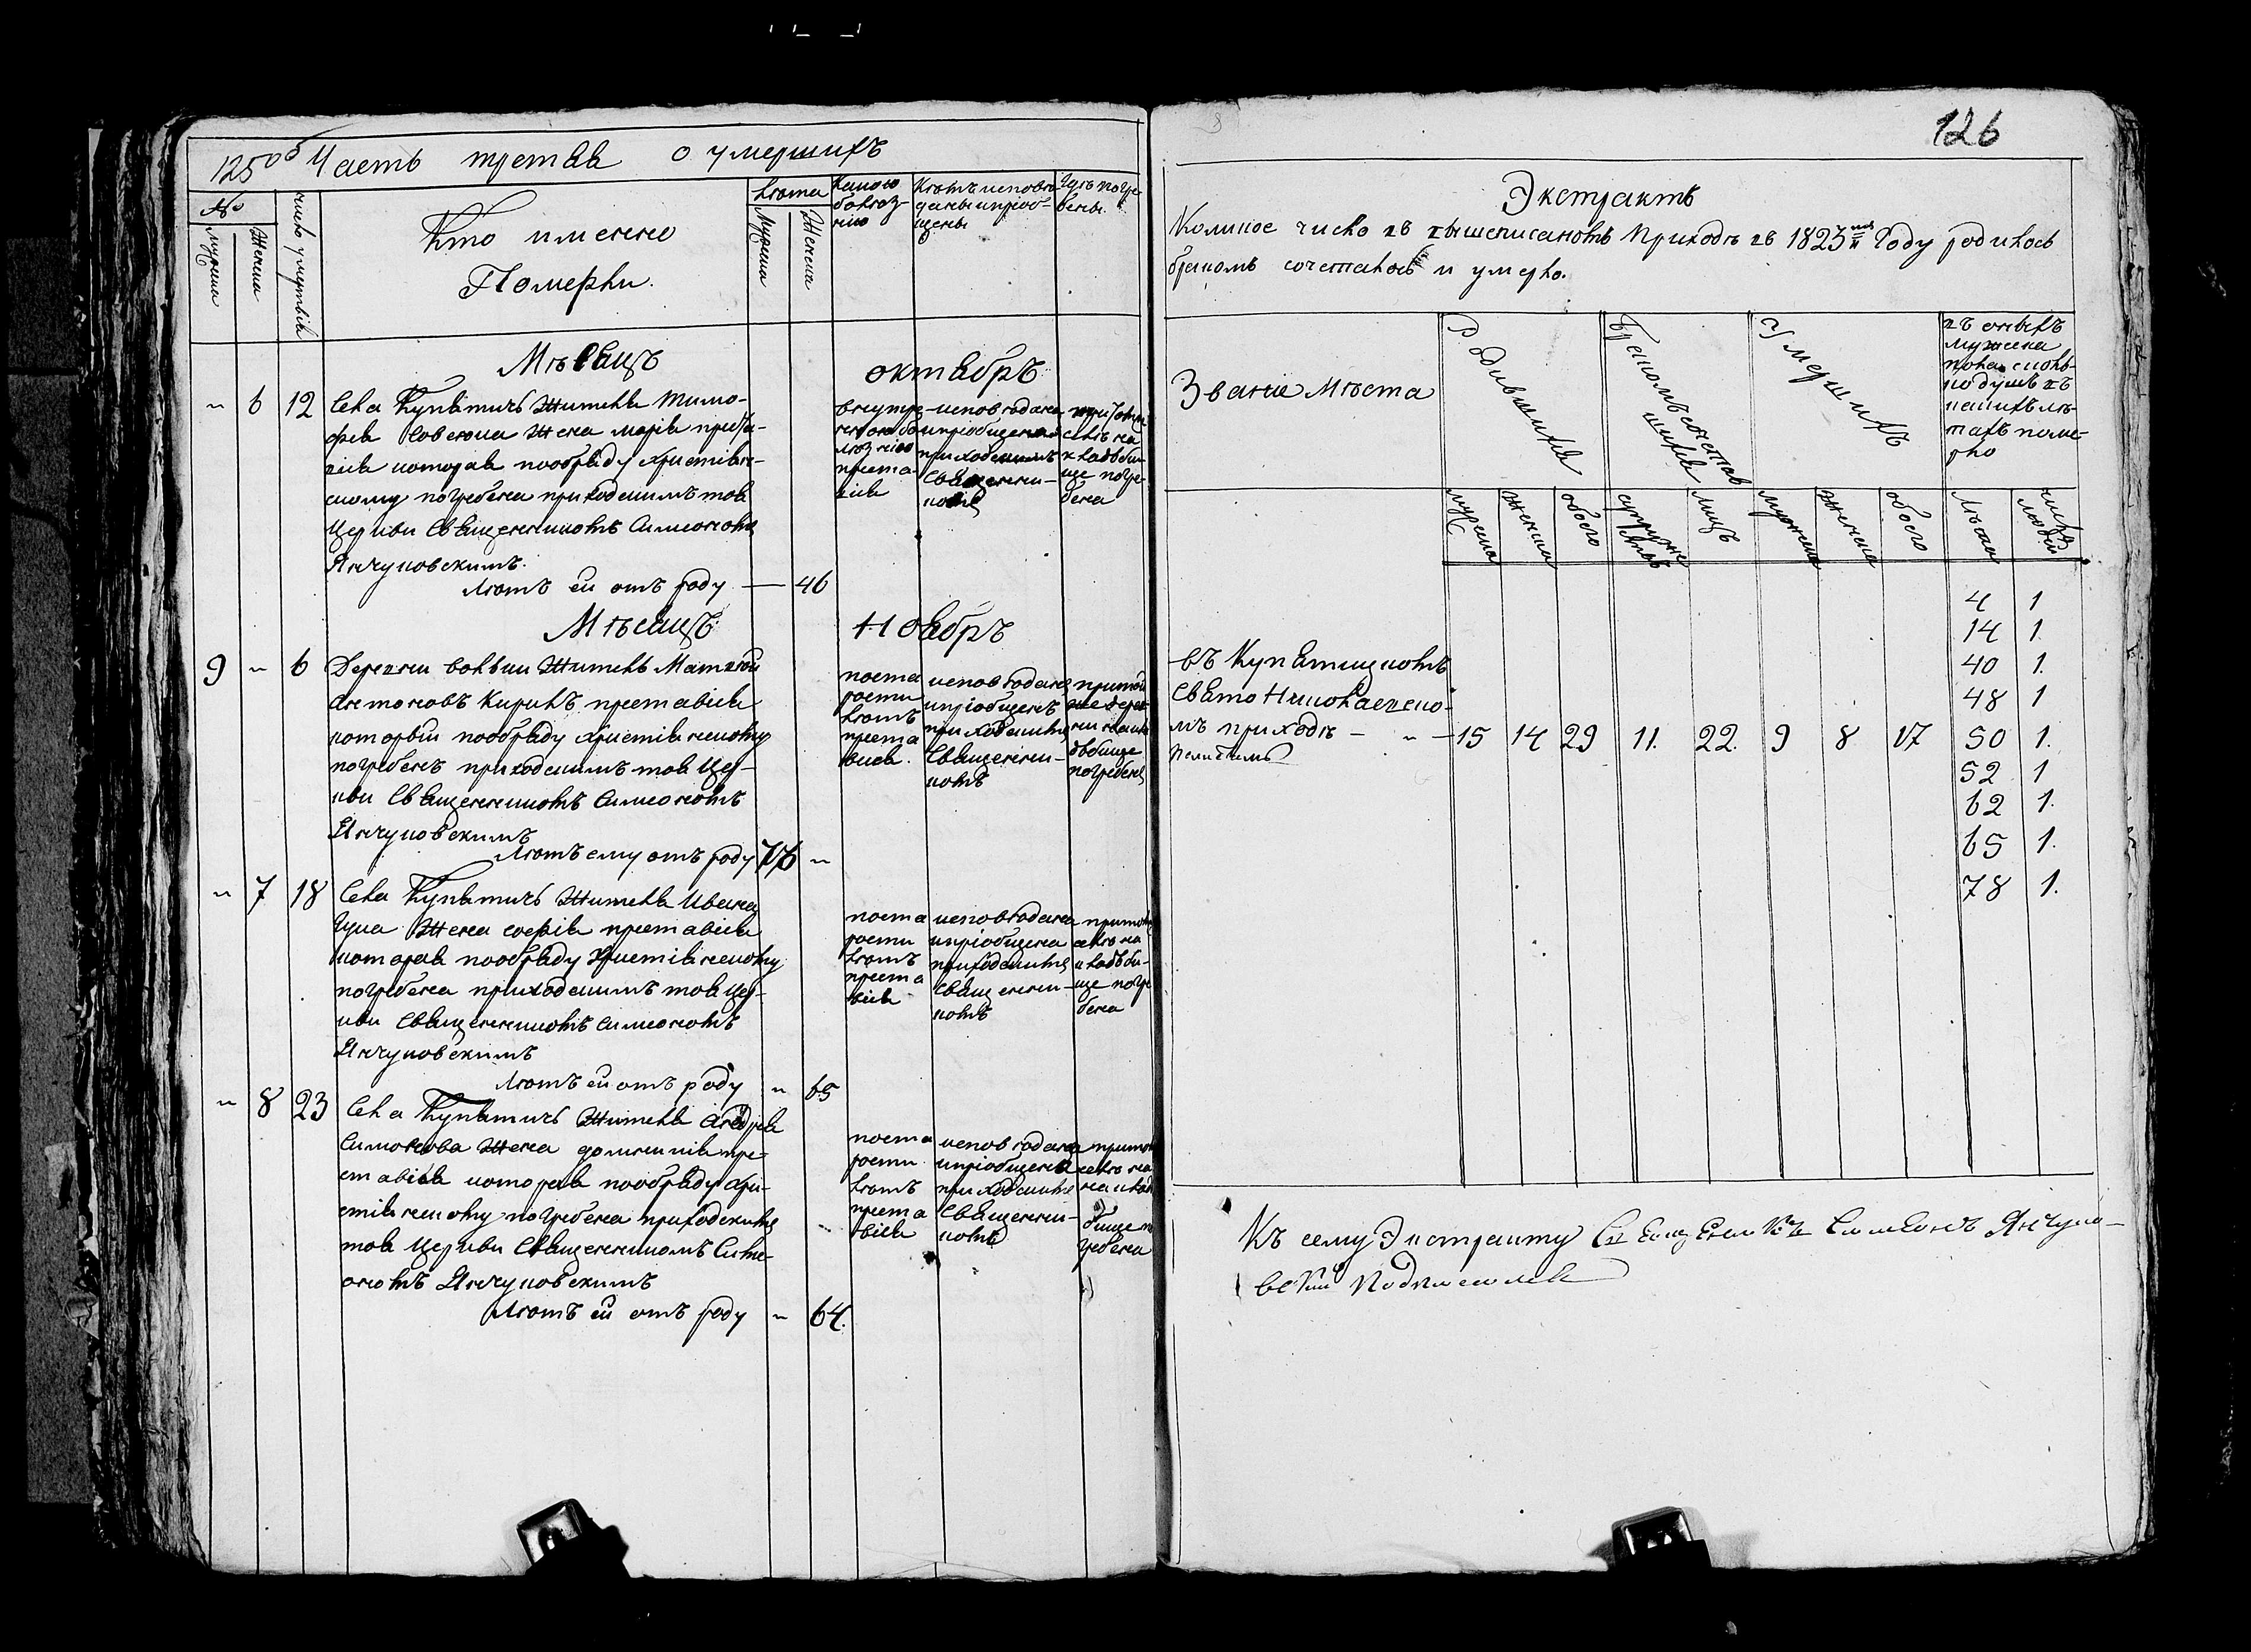 125об Часть третая о умершихъ
№
мужеска
женска
число умертвія
Кто именно
Померли.
Лѣта
Мужеска
Женска
Какою
болѣз-
нію
Кѣмъ исповѣ-
даны и пріоб-
щены
Гдѣ погре-
бены.
Мѣсяцъ октябрь
" 6 12 Села Купятичъ жителя Тимо-
фея жена марія преста-
вися которая по обряду христіанс-
кому погребена приходскимъ тоя
Церкви Священникомъ Симеономъ
Янчуковскимъ.
Лѣтъ ей отъ роду — 46
внутре-
ннею бо-
лѣзнію
преста-
вися
исповѣдана
и пріобщена
приходскимъ
Священни-
комъ
при томъ
селѣ на
кладби-
ще погре-
бена
Мѣсяцъ Ноябрь
9 " 6 Деревни жителъ Матвѣй
Антоновъ Кирикъ преставися
который по обряду христіанскому
погребенъ приходскимъ тоя Цер-
кви Священникомъ Симеономъ
Янчуковскимъ
Лѣтъ ему отъ роду 76 "
по ста
рости
лѣтъ
преста
вися.
исповѣданъ
и пріобщенъ
приходскимъ
Священни-
комъ
при той
же дерев-
ни на кла
дбище
погребенъ
" 7 18 Села Купятичъ жителя Ивана
Цука жена софія преставися
которая по обряду христіанскому
погребена приходскимъ тоя Цер-
кви Священникомъ Симеономъ
Янчуковскимъ
Лѣтъ ей отъ роду " 65
по ста
рости
лѣтъ
преста
вися
исповѣдана
и пріобщена
приходскимъ
Священни-
комъ
при томъ
селѣ на
кладби-
ще погре
бена
" 8 23 Села Купятичъ жителя Андрея
Симонова жена домникія пре-
ставися которая по обряду хри-
стіанскому погребена приходскимъ
тоя Церкви Священникомъ Симе-
ономъ Янчуковскимъ
Лѣтъ ей отъ роду " 64.
по ста
рости
лѣтъ
преста
вися
исповѣдана
и пріобщена
приходскимъ
Священни-
комъ
при томъ
селѣ на
на клад
бище по
гребена
126
Экстрактъ
Коликое число въ вышеписаномъ Приходѣ въ 1823мъ Году родилось
бракомъ сочеталось и умерло.
Званіе Мѣста
Родившихся
Бракомъ сочетав
шихся
Умершихъ
въ оныхъ
мужеска
пола сколь-
ко душъ въ
какихъ лѣ-
тахъ поме-
рло
мужеска
женска
обоего
супруже
ствъ
лицъ
мужеска
женска
обоего
Лѣта
число
людей
въ Купятицкомъ
Свято Николаевско-
мъ приходѣ — " — 15 14 29 11. 22. 9 8 17
4 1
14 1.
40 1.
48 1
50 1.
52 1
62 1.
65 1.
78 1.
Къ сему Экстракту Священникъ Симеонъ Янчуко-
вскій Подписался